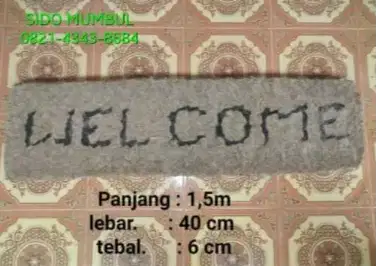 SIDO MUMBUL
0821-4343-8684
WELCOME
Panjang : 1,5m
lebar. : 40 cm
tebal. : 6 cm